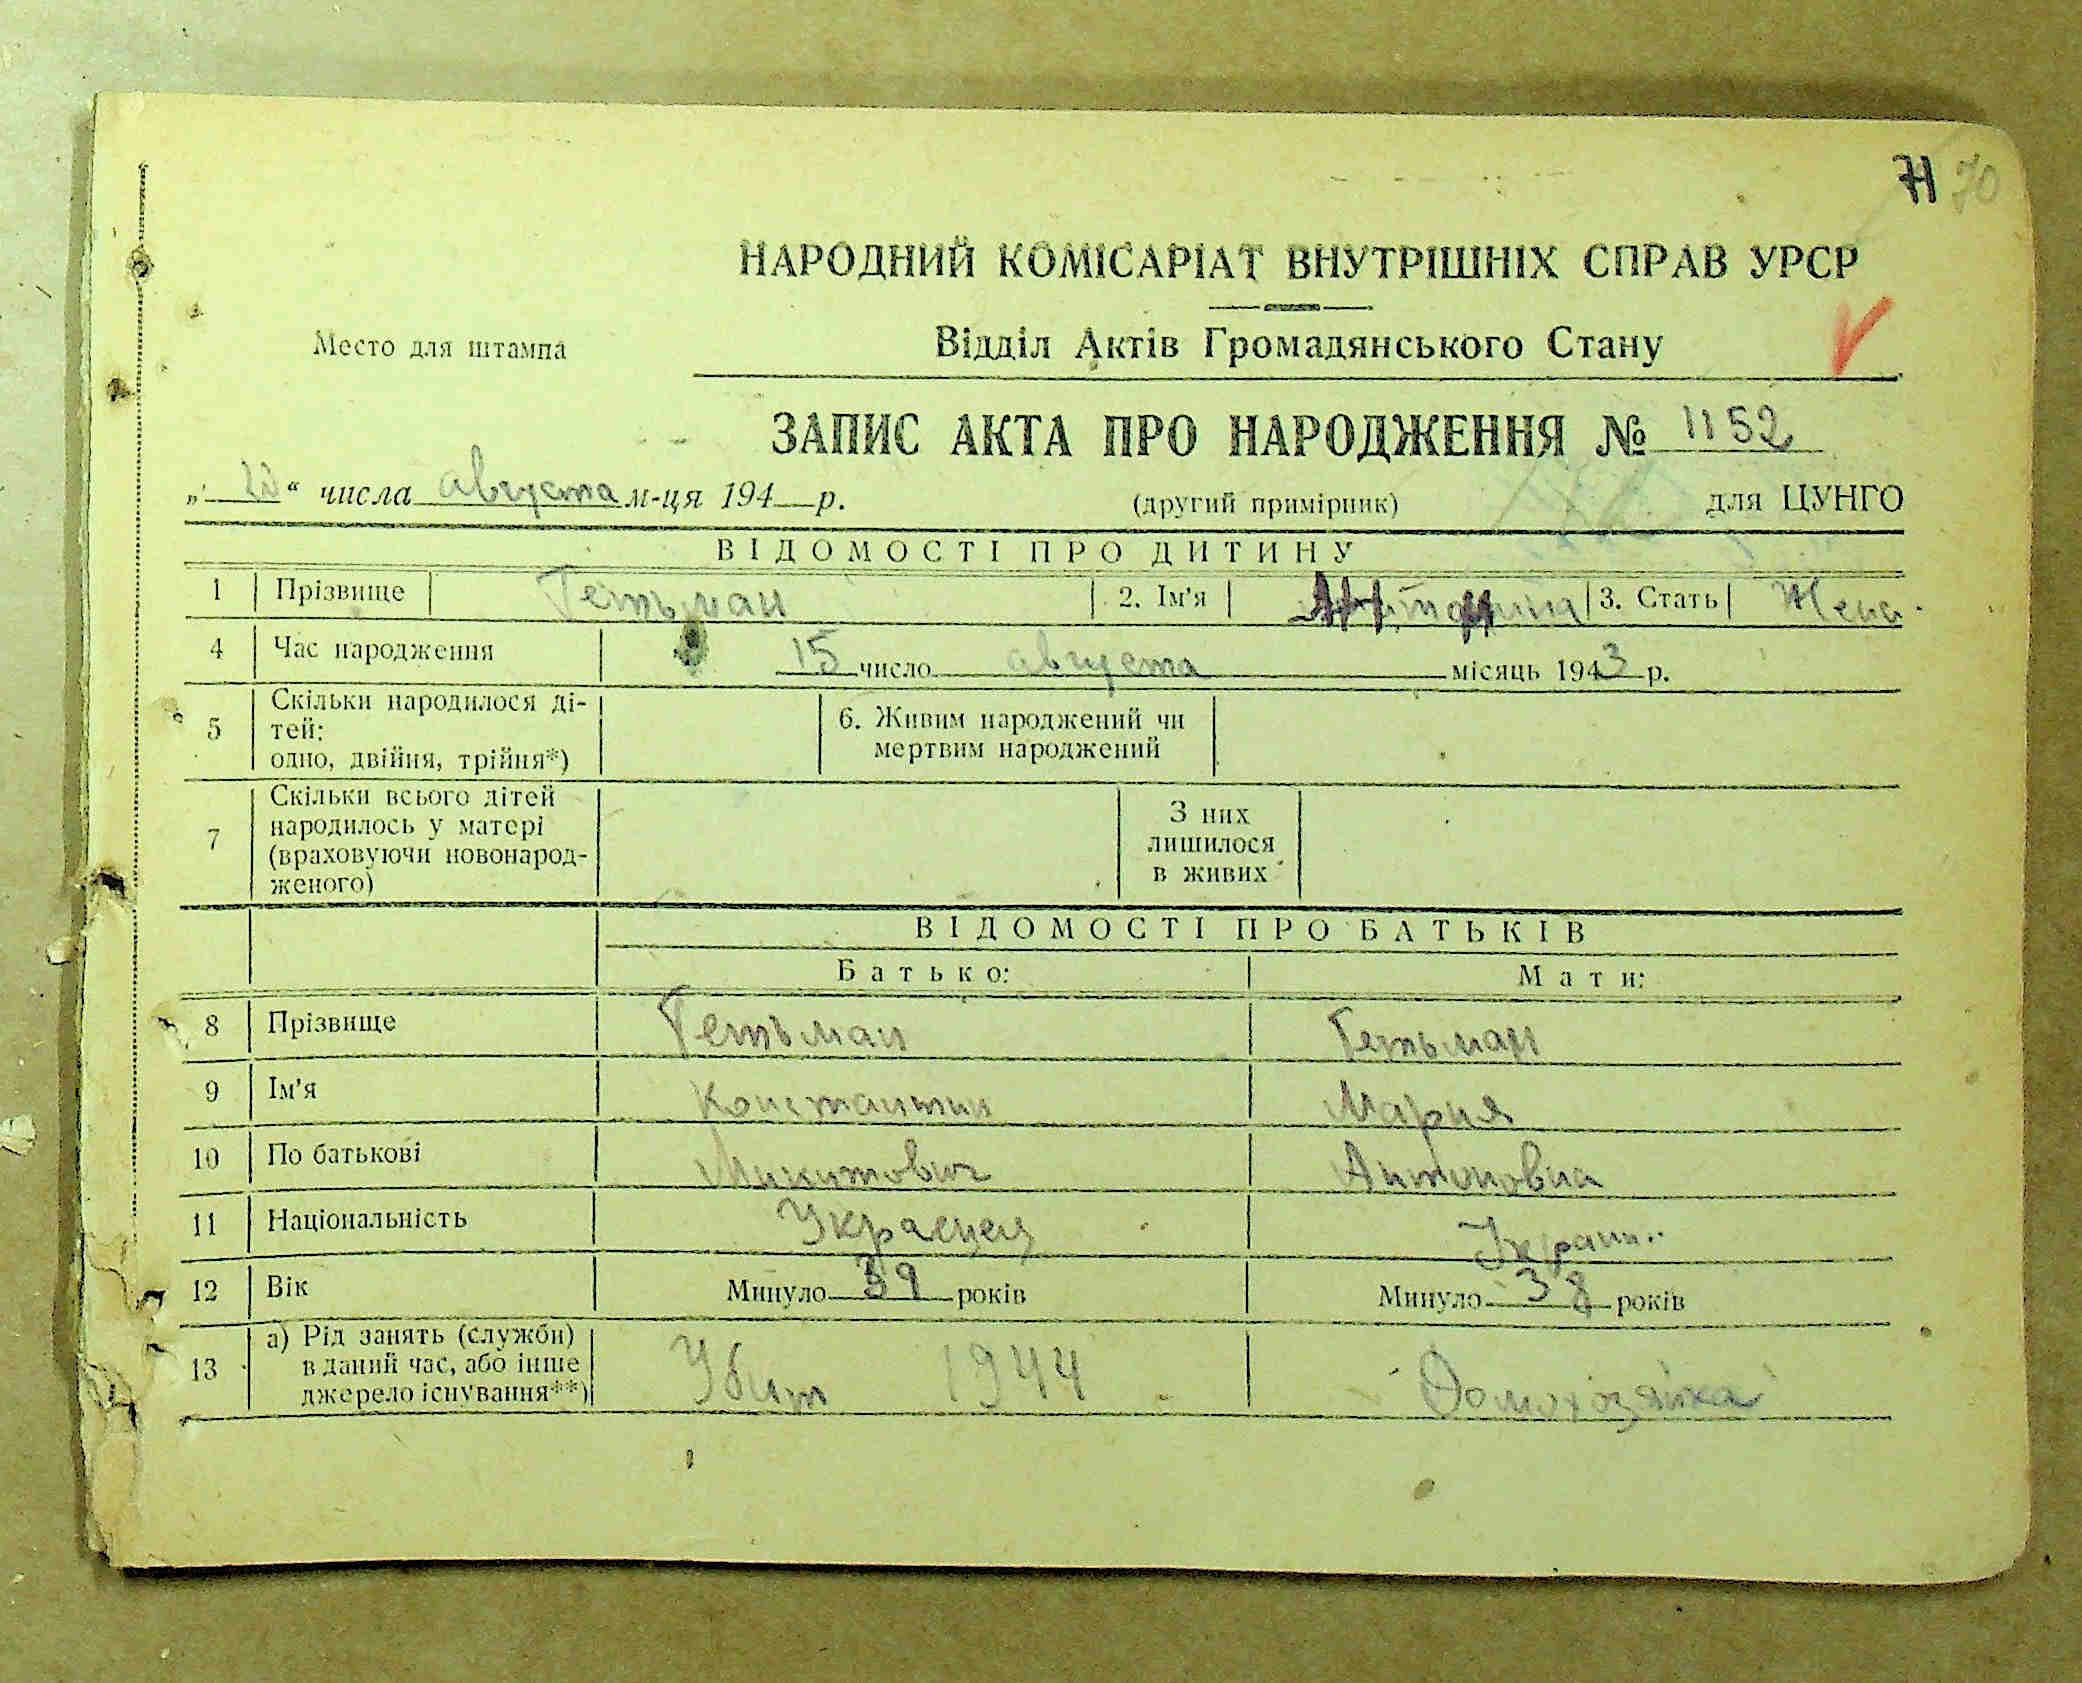 71 70
НАРОДНИЙ КОМІСАРІАТ ВНУТРІШНІХ СПРАВ УРСР
Место для штампа
Відділ Актів Громадянського Стану
ЗАПИС АКТА ПРО НАРОДЖЕННЯ № 1152
„ “ числа августа м-ця 194 р. (другий примірник) для ЦУНГО
ВІДОМОСТІ ПРО ДИТИНУ
1 Прізвище Гетьман 2. Ім'я 3. Стать Жен.
4 Час народження 15 число августа місяць 1943 р.
5 Скільки народилося ді-
тей:
одно, двійня, трійня*)
6. Живим народжений чи
мертвим народжений
7 Скільки всього дітей
народилось у матері
(враховуючи новонарод-
женого)
З них
лишилося
в живих
ВІДОМОСТІ ПРО БАТЬКІВ
Батько: Мати:
8 Прізвище Гетьман Гетьман
9 Ім'я Константин Мария
10 По батькові Микитович Антоновна
11 Національність Украенец Украин..
12 Вік Минуло 39 років Минуло 38 років
13 а) Рід занять (служби)
в даний час, або інше
джерело існування**)
Убит 1944 Домохозяйка